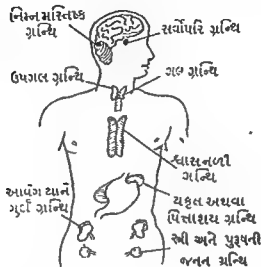 નિમ્નમસ્તિષ્ક
ગ્રંથિ
સર્વોપરિ ગ્રંથિ
ઉપગલ ગ્રંથિ
ગલ ગ્રંથિ
શ્વાસનળી
ગ્રંથિ
આવેગ યાને
ગુર્દા ગ્રંથિ
યકૃત અથવા
પિત્તાશય ગ્રંથિ
સ્ત્રી અને પુરૂષની
જનન ગ્રંથિ